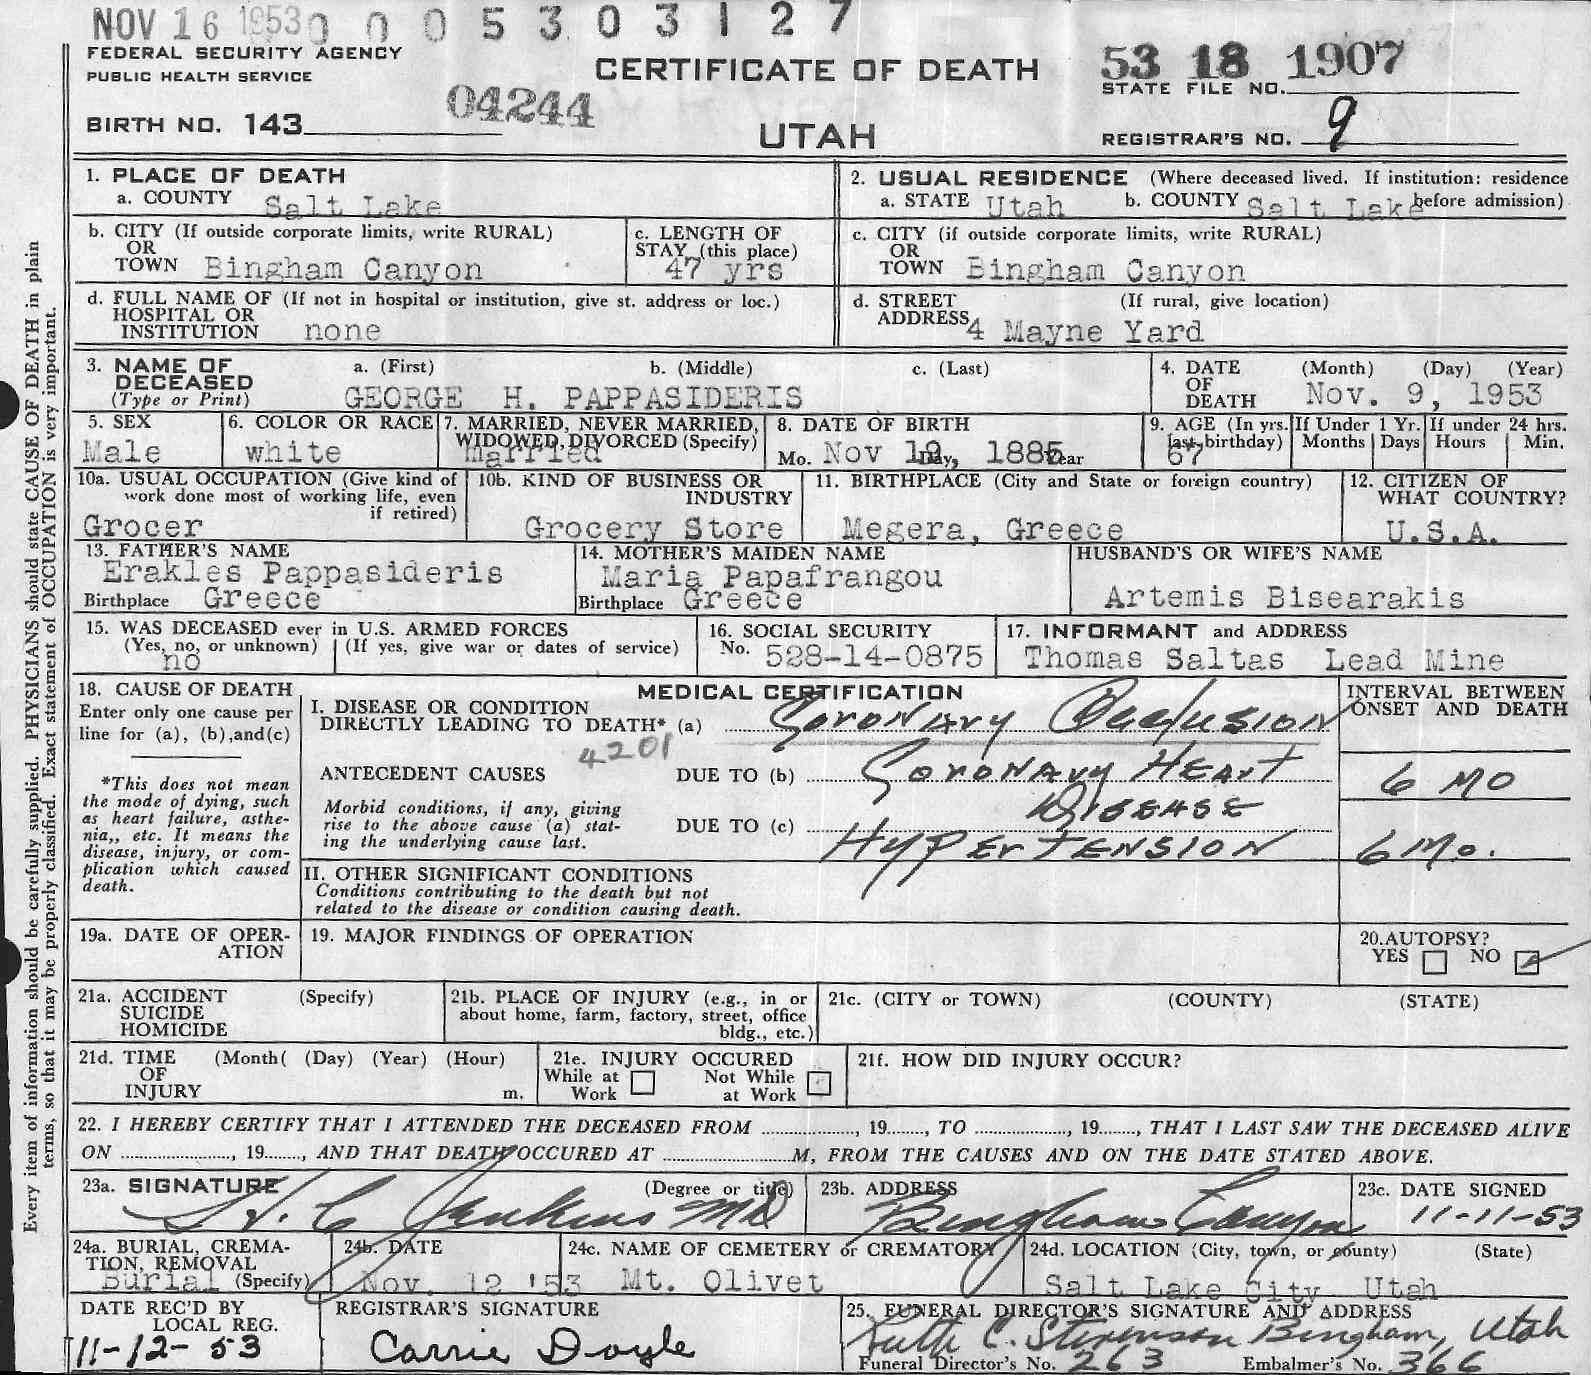 NOV 16 1953 0 0 0 5 3 0 3 1 2 7
FEDERAL SECURITY AGENCY
PUBLIC HEALTH SERVICE
CERTIFICATE OF DEATH
53 18 1907
STATE FILE NO.
04244
BIRTH NO. 143
UTAH
REGISTRAR'S NO. 9
1. PLACE OF DEATH
a. COUNTY Salt Lake
2. USUAL RESIDENCE (Where deceased lived. If institution: residence before admission)
a. STATE Utah b. COUNTY Salt Lake
b. CITY (If outside corporate limits, write RURAL)
OR
TOWN Bingham Canyon
c. LENGTH OF
STAY (this place)
47 yrs
c. CITY (if outside corporate limits, write RURAL)
OR
TOWN Bingham Canyon
d. FULL NAME OF (If not in hospital or institution, give st. address or loc.)
HOSPITAL OR
INSTITUTION none
d. STREET (If rural, give location)
ADDRESS 4 Mayne Yard
3. NAME OF a. (First) b. (Middle) c. (Last)
DECEASED
(Type or Print) GEORGE H. PAPPASIDERIS
4. DATE (Month) (Day) (Year)
OF
DEATH Nov. 9, 1953
5. SEX
Male
6. COLOR OR RACE
white
7. MARRIED, NEVER MARRIED,
WIDOWED, DIVORCED (Specify)
married
8. DATE OF BIRTH
Mo. Nov Day, 1885 Year
9. AGE (In yrs.
last birthday)
67
If Under 1 Yr.
Months Days
If under 24 hrs.
Hours Min.
10a. USUAL OCCUPATION (Give kind of
work done most of working life, even
if retired)
Grocer
10b. KIND OF BUSINESS OR
INDUSTRY
Grocery Store
11. BIRTHPLACE (City and State or foreign country)
Megera, Greece
12. CITIZEN OF
WHAT COUNTRY?
U.S.A.
13. FATHER'S NAME
Erakles Pappasideris
Birthplace Greece
14. MOTHER'S MAIDEN NAME
Maria Papafrangou
Birthplace Greece
HUSBAND'S OR WIFE'S NAME
Artemis Bisearakis
15. WAS DECEASED ever in U.S. ARMED FORCES
(Yes, no, or unknown) (If yes, give war or dates of service)
no
16. SOCIAL SECURITY
No. 528-14-0875
17. INFORMANT and ADDRESS
Thomas Saltas Lead Mine
18. CAUSE OF DEATH
Enter only one cause per
line for (a), (b),and(c)
*This does not mean
the mode of dying, such
as heart failure, asthe-
nia,, etc. It means the
disease, injury, or com-
plication which caused
death.
MEDICAL CERTIFICATION
I. DISEASE OR CONDITION
DIRECTLY LEADING TO DEATH* (a) Coronary Occlusion
4201
ANTECEDENT CAUSES DUE TO (b) Coronary Heart
Disease
Morbid conditions, if any, giving
rise to the above cause (a) stat-
ing the underlying cause last.
DUE TO (c) Hypertension
INTERVAL BETWEEN
ONSET AND DEATH
6 MO
6 Mo.
II. OTHER SIGNIFICANT CONDITIONS
Conditions contributing to the death but not
related to the disease or condition causing death.
19a. DATE OF OPER-
ATION
19. MAJOR FINDINGS OF OPERATION
20.AUTOPSY?
YES NO
21a. ACCIDENT (Specify)
SUICIDE
HOMICIDE
21b. PLACE OF INJURY (e.g., in or
about home, farm, factory, street, office
bldg., etc.)
21c. (CITY or TOWN) (COUNTY) (STATE)
21d. TIME (Month( (Day) (Year) (Hour)
OF
INJURY m.
21e. INJURY OCCURED
While at Work Not While at Work
21f. HOW DID INJURY OCCUR?
22. I HEREBY CERTIFY THAT I ATTENDED THE DECEASED FROM ................, 19......, TO ................, 19......, THAT I LAST SAW THE DECEASED ALIVE
ON ................, 19......, AND THAT DEATH OCCURED AT ................M, FROM THE CAUSES AND ON THE DATE STATED ABOVE.
23a. SIGNATURE (Degree or title)
H. C. Jenkins MD
23b. ADDRESS
Bingham Canyon
23c. DATE SIGNED
11-11-53
24a. BURIAL, CREMA-
TION, REMOVAL
Burial (Specify)
24b. DATE
Nov. 12 '53
24c. NAME OF CEMETERY or CREMATORY
Mt. Olivet
24d. LOCATION (City, town, or county) (State)
Salt Lake City Utah
DATE REC'D BY
LOCAL REG.
11-12-53
REGISTRAR'S SIGNATURE
Carrie Doyle
25. FUNERAL DIRECTOR'S SIGNATURE AND ADDRESS
Ruth C. Stevenson Bingham, Utah
Funeral Director's No. 263 Embalmer's No. 366
Every item of information should be carefully supplied. PHYSICIANS should state CAUSE OF DEATH in plain
terms, so that it may be properly classified. Exact statement of OCCUPATION is very important.